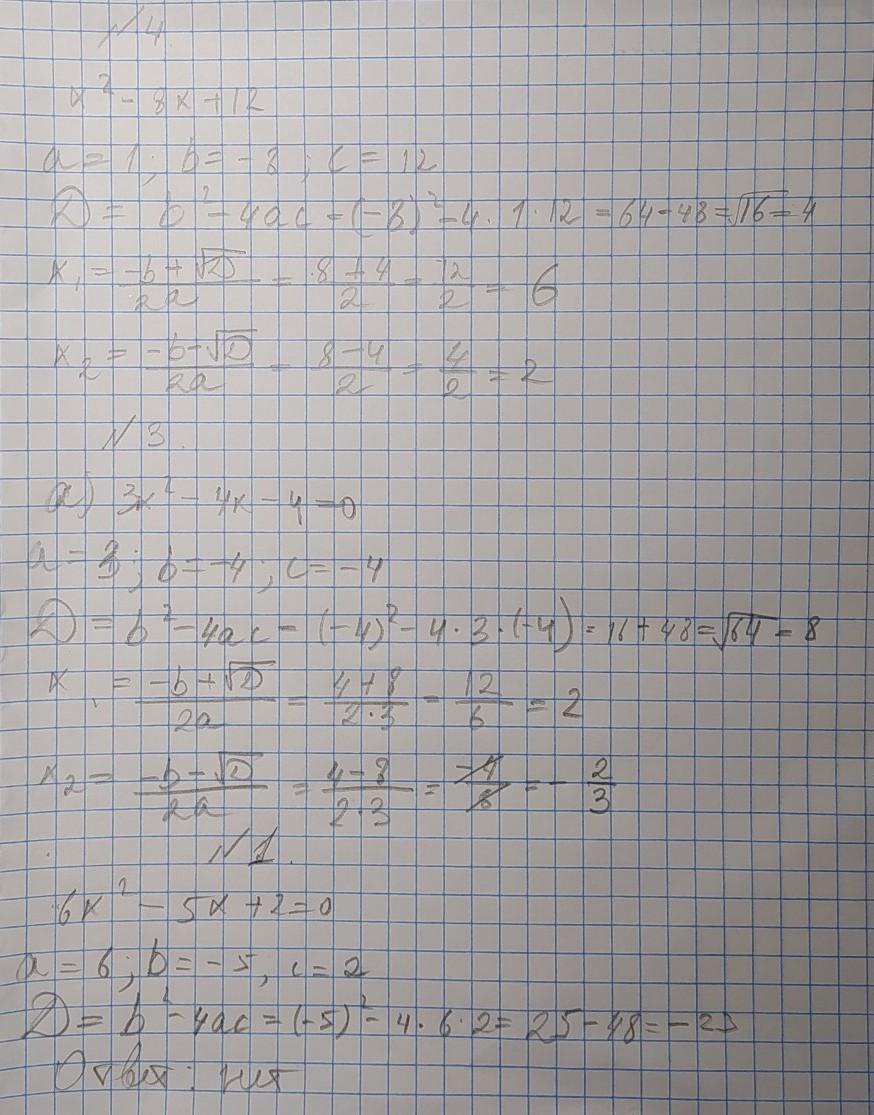 №4
x² - 8x + 12
a = 1; b = -8; c = 12
D = b² - 4ac = (-8)² - 4 · 1 · 12 = 64 - 48 = √16 = 4
x₁ = (-b + √D)/(2a) = (8 + 4)/2 = 12/2 = 6
x₂ = (-b - √D)/(2a) = (8 - 4)/2 = 4/2 = 2
№3.
а) 3x² - 4x - 4 = 0
a = 3; b = -4; c = -4
D = b² - 4ac = (-4)² - 4 · 3 · (-4) = 16 + 48 = √64 = 8
x₁ = (-b + √D)/(2a) = (4 + 8)/(2·3) = 12/6 = 2
x₂ = (-b - √D)/(2a) = (4 - 8)/(2·3) = -4/6 = -2/3
№1.
6x² - 5x + 2 = 0
a = 6; b = -5, c = 2
D = b² - 4ac = (-5)² - 4 · 6 · 2 = 25 - 48 = -23
Ответ: нет